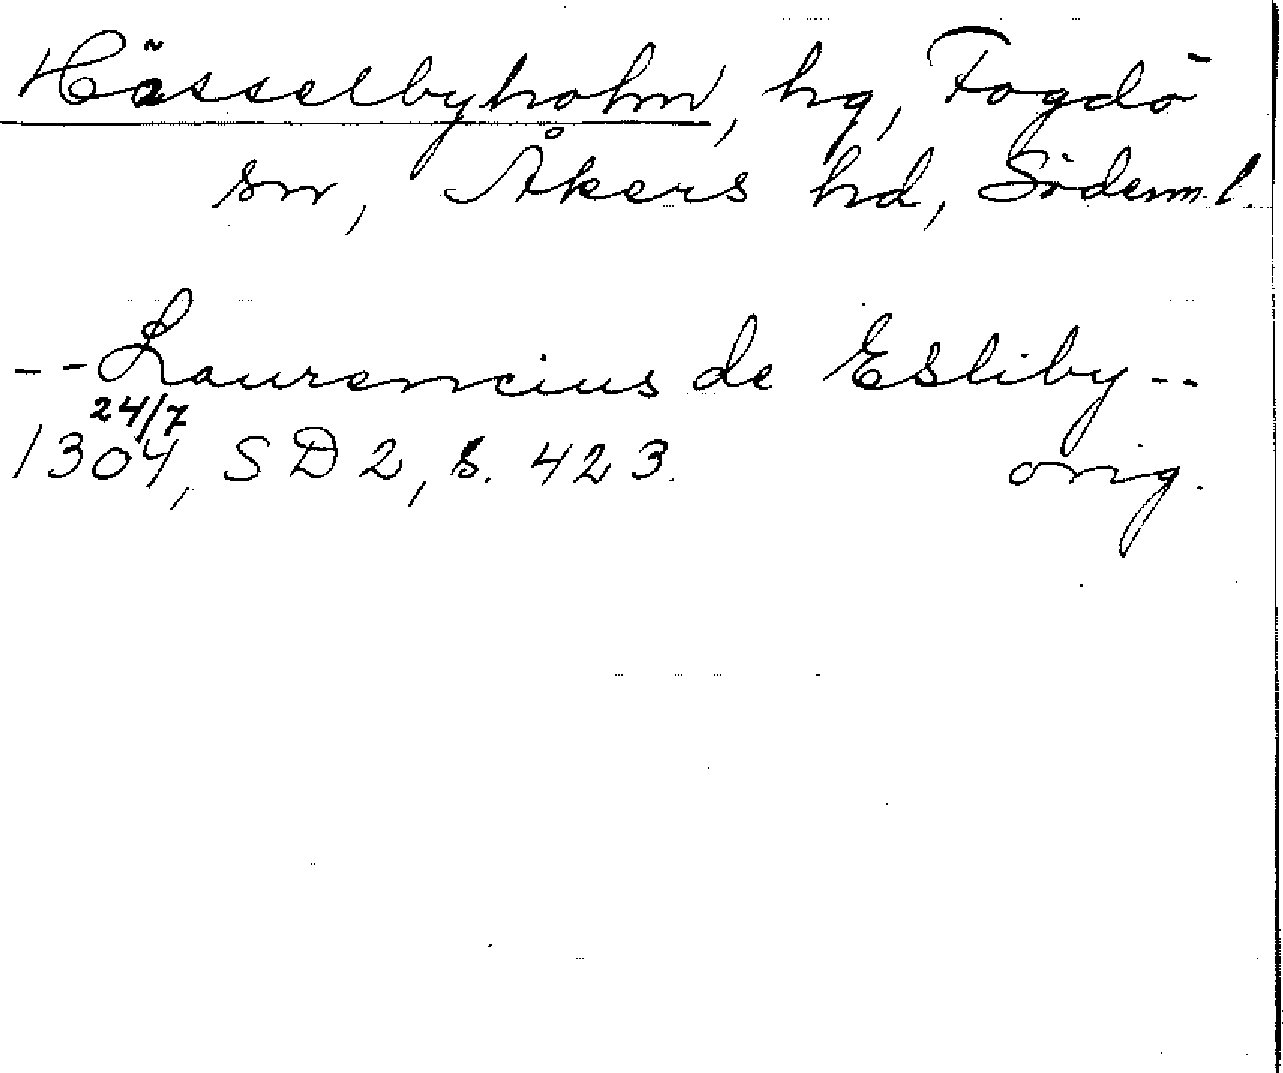 Hässelbyholm, hg, Fogdö
sn, Åkers hd, Söderml.
-- Laurencius de Esliby --
24/7
1304, SD 2, s. 423. orig.